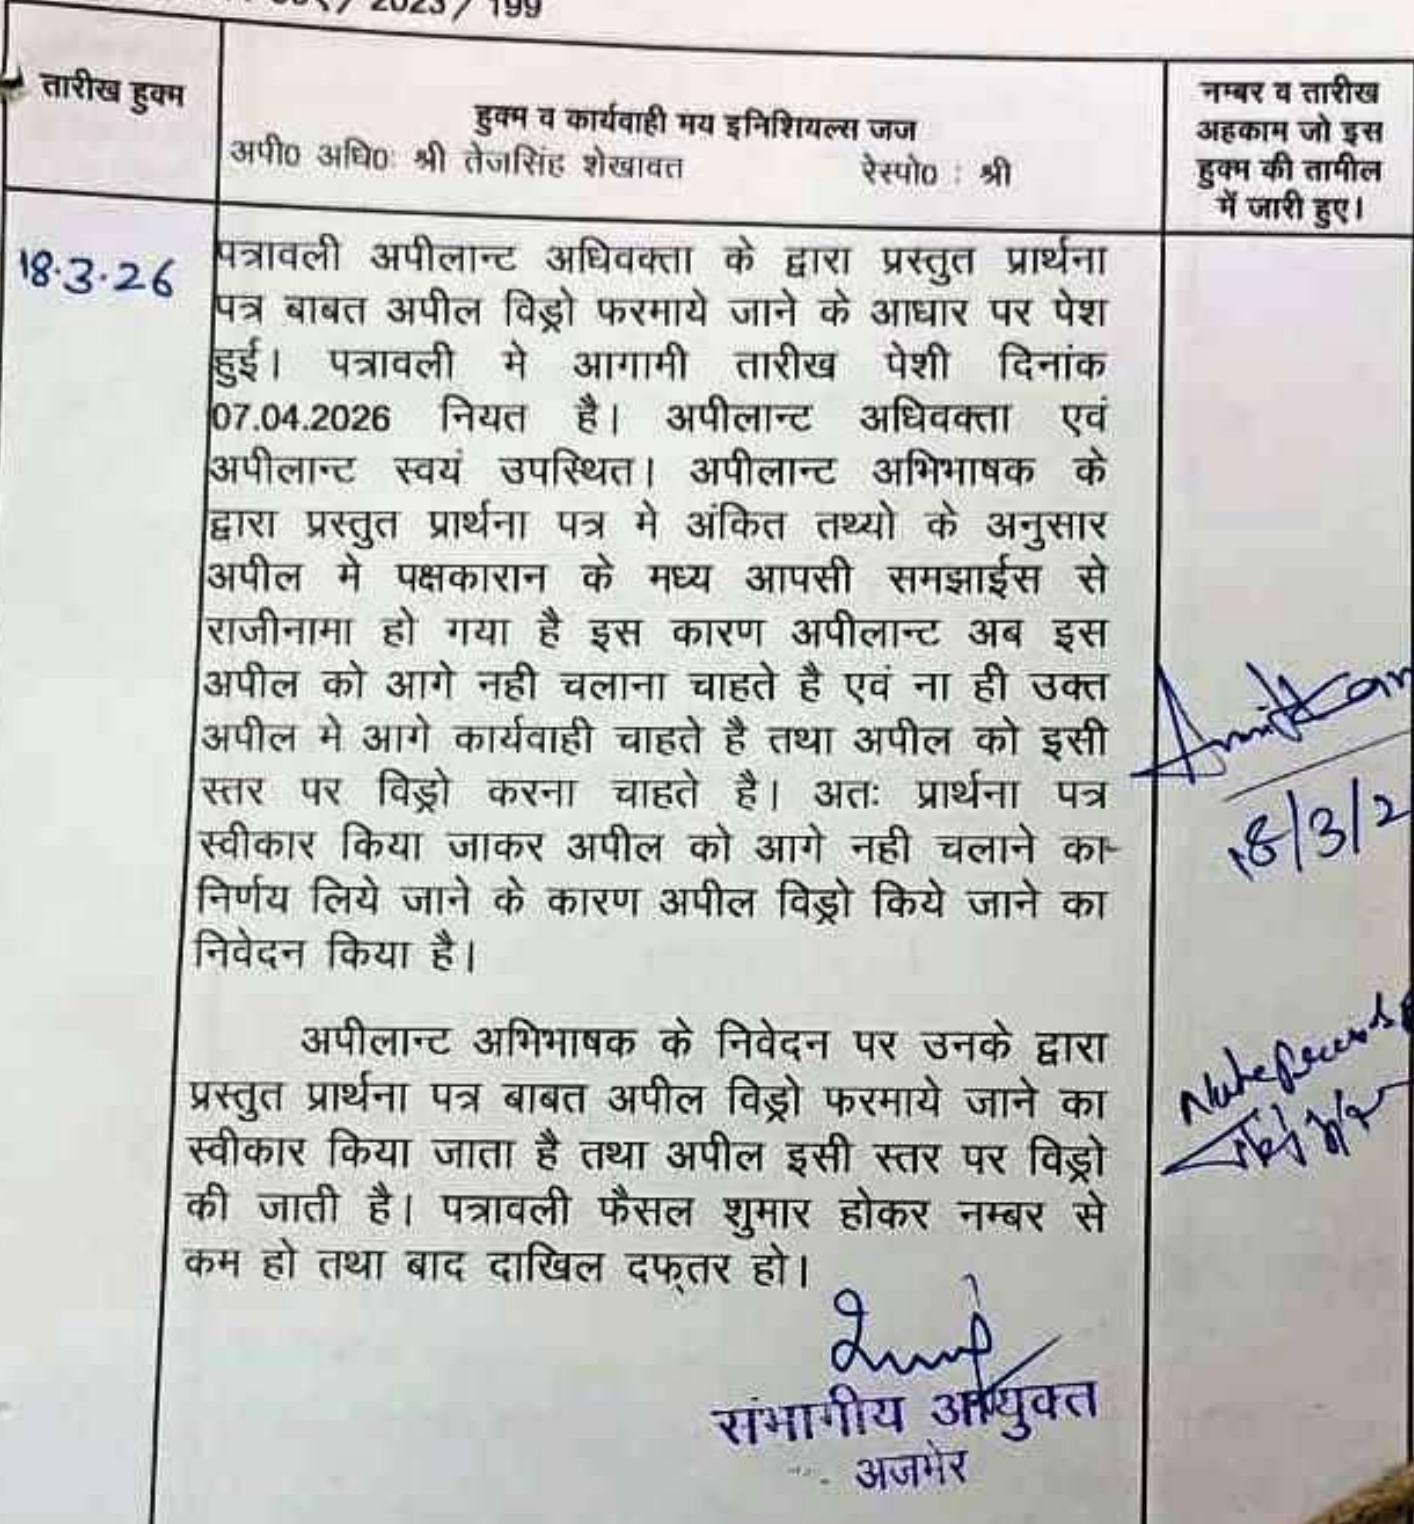 / 2023 / 199
तारीख हुक्म
हुक्म व कार्यवाही मय इनिशियल्स जज
अपी0 अधि0: श्री तेजसिंह शेखावत रेस्पो0 : श्री
नम्बर व तारीख
अहकाम जो इस
हुक्म की तामील
में जारी हुए।
18.3.26
पत्रावली अपीलान्ट अधिवक्ता के द्वारा प्रस्तुत प्रार्थना
पत्र बाबत अपील विड्रो फरमाये जाने के आधार पर पेश
हुई। पत्रावली मे आगामी तारीख पेशी दिनांक
07.04.2026 नियत है। अपीलान्ट अधिवक्ता एवं
अपीलान्ट स्वयं उपस्थित। अपीलान्ट अभिभाषक के
द्वारा प्रस्तुत प्रार्थना पत्र मे अंकित तथ्यो के अनुसार
अपील मे पक्षकारान के मध्य आपसी समझाईस से
राजीनामा हो गया है इस कारण अपीलान्ट अब इस
अपील को आगे नही चलाना चाहते है एवं ना ही उक्त
अपील मे आगे कार्यवाही चाहते है तथा अपील को इसी
स्तर पर विड्रो करना चाहते है। अतः प्रार्थना पत्र
स्वीकार किया जाकर अपील को आगे नही चलाने का
निर्णय लिये जाने के कारण अपील विड्रो किये जाने का
निवेदन किया है।
अपीलान्ट अभिभाषक के निवेदन पर उनके द्वारा
प्रस्तुत प्रार्थना पत्र बाबत अपील विड्रो फरमाये जाने का
स्वीकार किया जाता है तथा अपील इसी स्तर पर विड्रो
की जाती है। पत्रावली फैसल शुमार होकर नम्बर से
कम हो तथा बाद दाखिल दफ्तर हो।
18/3/2
संभागीय आयुक्त
अजमेर